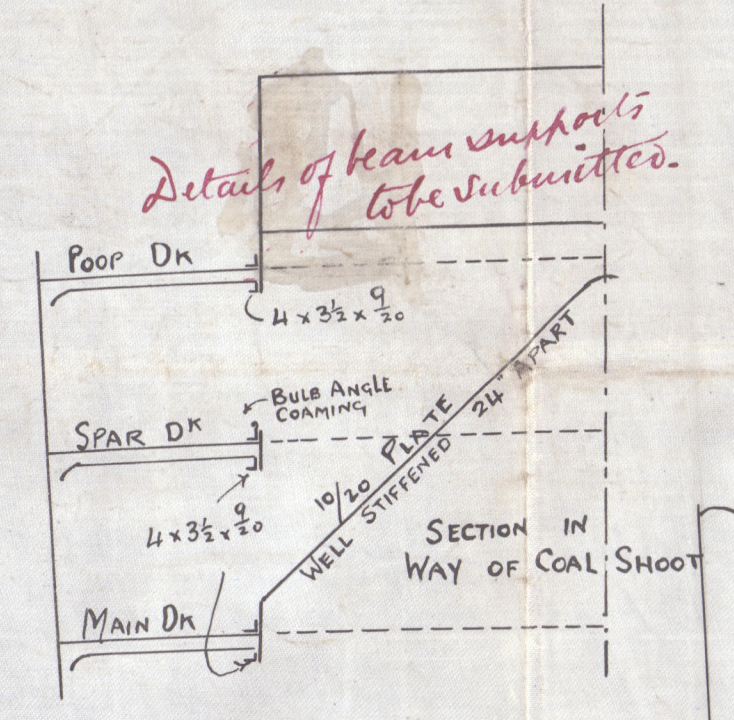 Details of beam supports
to be submitted.
POOP DK
4 x 3½ x 9/20
BULB ANGLE
COAMING
SPAR DK
10/20 PLATE
WELL STIFFENED 24" APART
4 x 3½ x 9/20
SECTION IN
WAY OF COAL SHOOT
MAIN DK